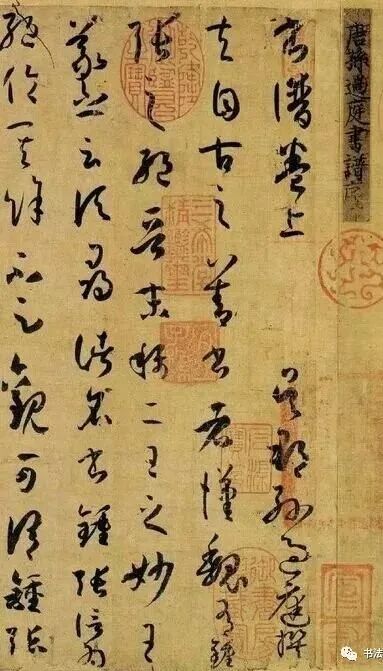 唐孫過庭書譜序
書譜卷上 吳郡孫過庭撰
夫自古之善書者漢魏有鍾
張之絕晉末稱二王之妙王
羲之云頃尋諸名書鍾張信為
絕倫其餘不足觀可謂鍾張
书法